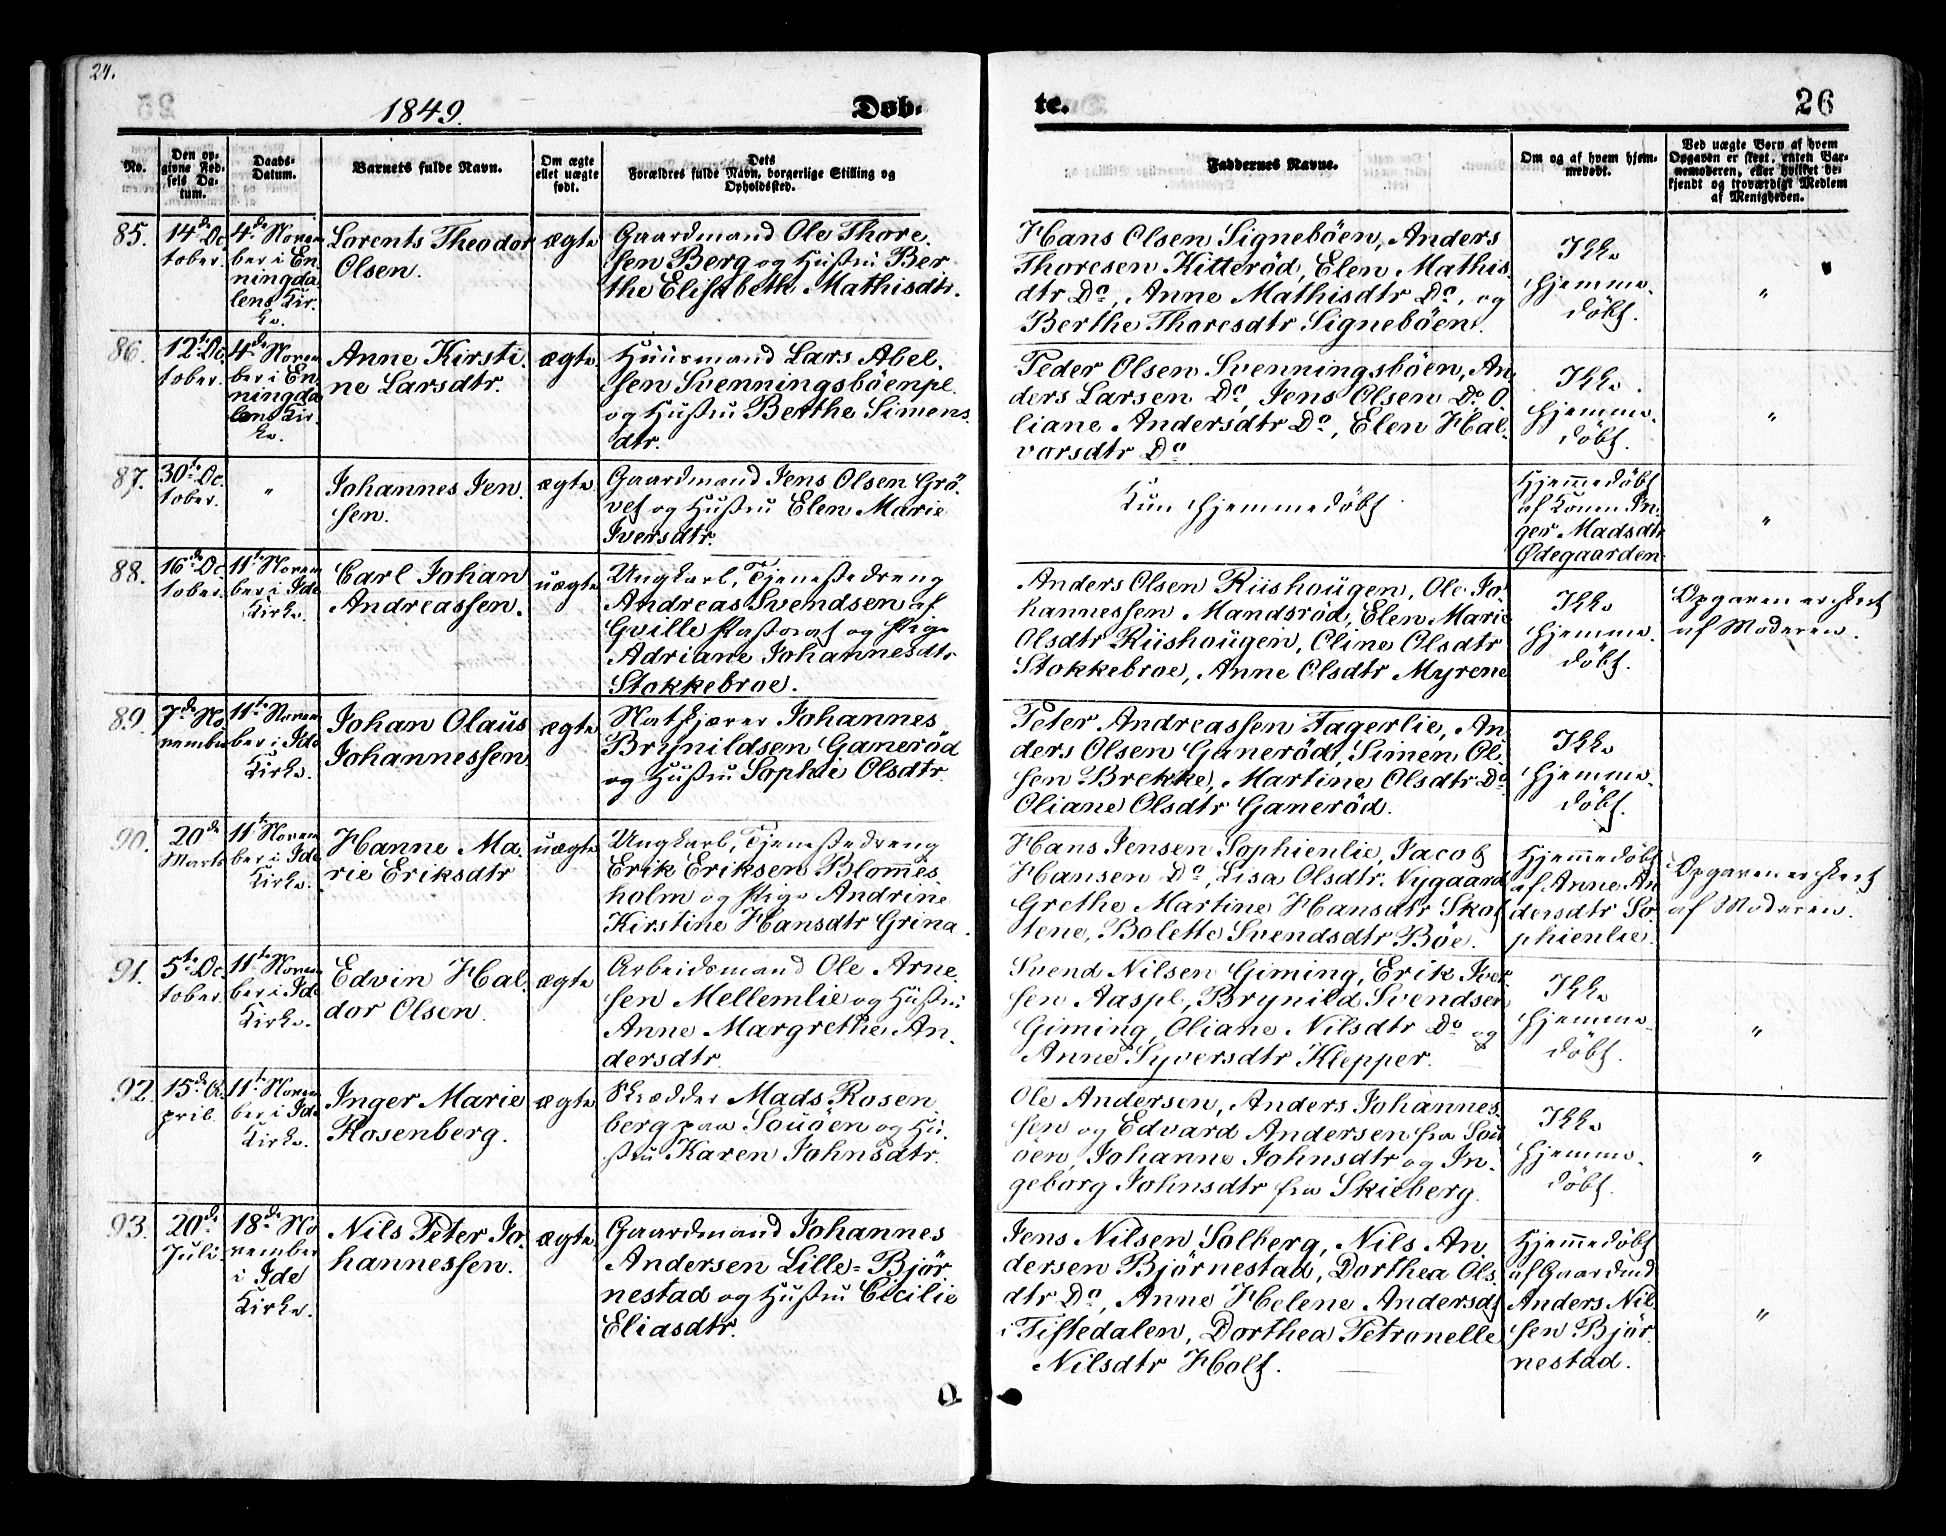 24.
1849.
Døb-
te.
26
No.
Den op-
givne Fød-
sels Da-
tum.
Daabs-
Datum.
Barnets fulde Navn.
Om ægte
ellet uægte
født.
Dets
Forældres fulde Navn, borgerlige Stilling og
Opholdssted.
Faddernes Navne.
Om og af hvem hjem-
medøbt.
Ved uægte Børn af hvem
Opgaven er skeet, enten Bar-
nemoderen, eller hvilket be-
kjendt og troværdigt Medlem
af Menigheden.
85.
14de Oc
tober.
4de Novem
ber i En
ningda
lens Kir-
ke.
Lorents Theodor
Olsen.
ægte
Gaardmand Ole Thore.
sen Berg og Hustru Ber
the Elisabeth Mathisdtr.
Hans Olsen Signebøen, Anders
Thoresen Kitterød, Elen Mathis
dtr Do, Anne Mathisdtr Do, og
Berthe Thoresdtr Signebøen.
Ikke
hjemme-
døbt.
"
86.
12te Oc
tober.
4de Novem
ber i En
ningda
lens Kir-
ke.
Anne Kirsti
ne Larsdtr.
ægte
Huusmand Lars Abel.
sen Svenningsbøenpl.
og Hustru Berthe Simens
dtr.
Peder Olsen Svenningsbøen, An
ders Larsen Do, Jens Olsen Do O
liane Andersdtr Do, Elen Hal-
vorsdtr Do
Ikke
hjemme-
døbt.
"
87.
30te Oc
tober.
"
Johannes Jen.
sen.
ægte
Gaardmand Jens Olsen Grø-
vet og Hustru Elen Marie
Iversdtr.
Kun hjemmedøbt
Hjemmedøbt
af Konen In-
ger Madsdtr
Ødegaarden
"
88.
16de Oc
tober.
11te Novem
ber i Ide
Kirke.
Carl Johan
Andreassen.
uægte
Ungkarl, Tjenestedreng
Andreas Svendsen af
Qville Pastorat og Pige
Adriane Johannesdtr
Stokkebroe.
Anders Olsen Riishougen, Ole Jo
hannessen Mandsrød, Elen Marie
Olsdtr Riishougen, Oline Olsdtr
Stokkebroe, Anne Olsdtr Myrene
Ikke
hjemme-
døbt.
Opgaven er skeet
af Moderen.
89.
7de No
vember
11te Novem
ber i Ide
Kirke.
Johan Olaus
Johannessen.
ægte
Natskjærer Johannes
Brynildsen Ganerød
og Hustru Sophie Olsdtr
Peter Andreassen Fagerlie, An
ders Olsen Ganerød, Simen Ol-
sen Brekke, Martine Olsdtr Do
Oliane Olsdtr Ganerød.
Ikke
hjemme-
døbt.
90.
20de
Marts
11te Novem
ber i Ide
Kirke.
Hanne Ma.
rie Eriksdtr
uægte
Ungkarl, Tjenestedreng
Erik Eriksen Blommes
holm og Pige Andrine
Kirstine Hansdtr Grina.
Hans Jensen Sophienlie, Jacob
Hansen Do, Lisa Olsdtr Nygaard
Grethe Martine Hansdtr Skot
tene, Bolette Svendsdtr Bøe.
Hjemmedøbt
af Anne An
dersdtr So-
phienlie.
Opgaven er skeet
af Moderen.
91.
5te Oc
tober.
11te Novem
ber i Ide
Kirke.
Edvin Hal.
dor Olsen.
ægte
Arbeidsmand Ole Arne.
sen Mellemlie og Hustru
Anne Margrethe An.
dersdtr.
Svend Nilsen Giming, Erik Iver-
sen Aaspl, Brynild Svendsen
Giming, Oliane Nilsdtr Do og
Anne Syversdtr Klepper.
Ikke
hjemme-
døbt.
"
92.
15de A-
pril.
11te Novem
ber i Ide
Kirke.
Inger Marie
Rosenberg.
ægte
Skrædder Mads Rosen
berg paa Souøen og Hu-
stru Karen Johnsdtr.
Ole Andersen, Anders Johannes.
sen og Edvard Andersen fra Sou
øen, Johanne Johnsdtr og In-
geborg Johnsdtr fra Skieberg.
Ikke
hjemme-
døbt.
"
93.
20de
Juli.
18de No
vember
i Ide
Kirke.
Nils Peter Jo.
hannessen.
ægte
Gaardmand Johannes
Andersen Lille-Bjør
nestad og Hustru Cicilie
Eliasdtr.
Jens Nilsen Solberg, Nils An
dersen Bjørnestad, Dorthea Ols.
dtr Do, Anne Helene Andersdt
i Tistedalen, Dorthea Petronelle
Nilsdtr Holt.
Hjemmedøbt
af Gaardmd
Anders Nil.
sen Bjør
nestad.
"